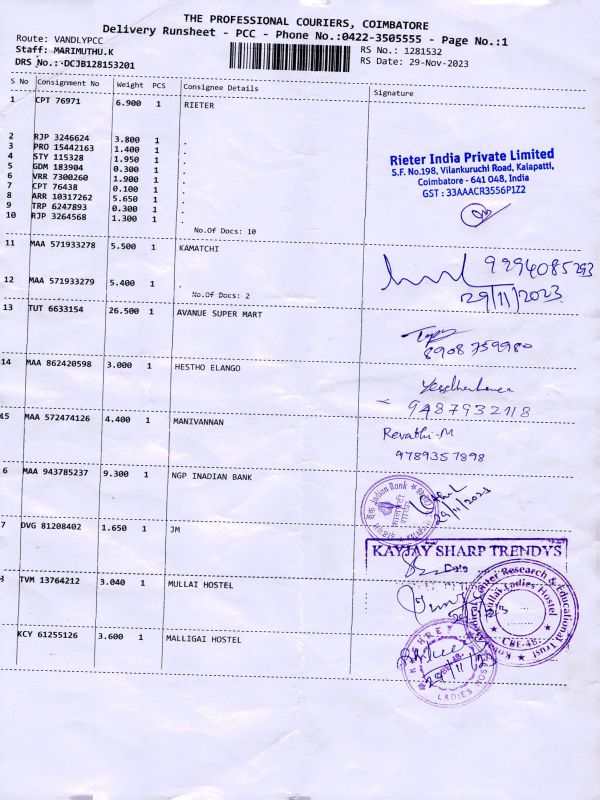 THE PROFESSIONAL COURIERS, COIMBATORE
Delivery Runsheet - PCC - Phone No.:0422-3505555 - Page No.:1
Route: VANDLYPCC
Staff: MARIMUTHU.K
RS No.: 1281532
DRS No.: DCJB128153201
RS Date: 29-Nov-2023
S No Consignment No Weight PCS Consignee Details Signature
1 CPT 76971 6.900 1 RIETER
2 RJP 3246624 3.800 1 .
3 PRO 15442163 1.400 1 .
4 STY 115328 1.950 1 .
5 GDM 183904 0.300 1 .
6 VRR 7300260 1.900 1 .
7 CPT 76438 0.100 1 .
8 ARR 10317262 5.650 1 .
9 TRP 6247893 0.300 1 .
10 RJP 3264568 1.300 1 .
No.Of Docs: 10
Rieter India Private Limited
S.F. No.198, Vilankuruchi Road, Kalapatti,
Coimbatore - 641 048, India
GST : 33AAACR3556P1Z2
11 MAA 571933278 5.500 1 KAMATCHI
9994085293
12 MAA 571933279 5.400 1 .
No.Of Docs: 2
29/11/2023
13 TUT 6633154 26.500 1 AVANUE SUPER MART
8908759980
14 MAA 862420598 3.000 1 HESTHO ELANGO
9487932118
15 MAA 572474126 4.400 1 MANIVANNAN
Revathi-M
9789357898
6 MAA 943785237 9.300 1 NGP INADIAN BANK
Indian Bank
29/11/2023
7 DVG 81208402 1.650 1 JM
KAYJAY SHARP TRENDYS
TVM 13764212 3.040 1 MULLAI HOSTEL
Research & Educational Trust
Mullai Ladies Hostel
CBE-48
KCY 61255126 3.600 1 MALLIGAI HOSTEL
29/11/23
LADIES HOS